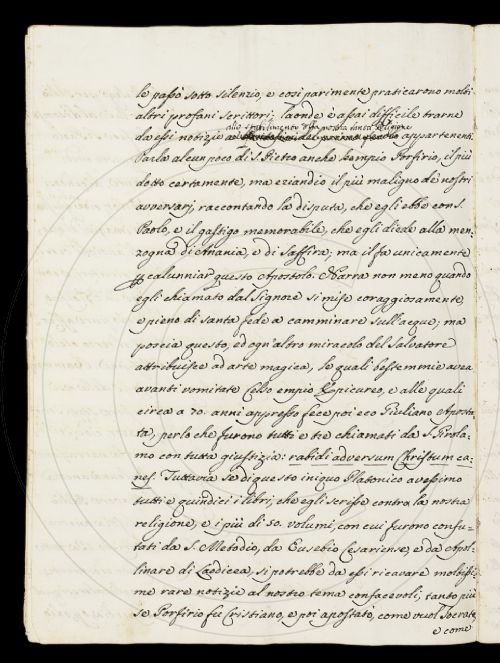 le passò sotto silenzio, e così parimente praticarono molti
altri profani scrittori; laonde è assai difficile trarne
allo stabilimento della nostra santa Religione
da essi notizie appartenenti.
Parla alcun poco di S. Pietro anche l'empio Porfirio, il più
dotto certamente, ma eziandio il più maligno de' nostri
avversarj, raccontando la disputa, che egli ebbe con S.
Paolo, e il gastigo memorabile, che egli diede alla men-
zogna di Anania, e di Saffira; ma il fa unicamente
p calunniar questo Apostolo. Narra non meno quando
egli chiamato dal Signore si mise coraggiosamente
e pieno di santa fede a camminare sull'acque; ma
poscia questo, ed ogn'altro miracolo del Salvatore
attribuisce ad arte magica, le quali bestemmie avea
avanti vomitate Celso empio Epicureo, e alle quali
circa a 70. anni appresso fece poi eco Giuliano Aposta-
ta, perlochè furono tutti e tre chiamati da S. Girola-
mo con tutta giustizia: rabidi adversum Christum ca-
nes. Tuttavia se di questo iniquo Platonico avessimo
tutti e quindici i libri, che egli scrisse contra la nostra
religione, e i più di 30. volumi, con cui furono confu-
tati da S. Metodio, da Eusebio Cesariense, e da Apol-
linare di Laodicea, si potrebbe da essi ricavare moltissi-
me rare notizie al nostro tema confacevoli, tanto più
se Porfirio fu Cristiano, e poi apostatò, come vuol Socrate,
e come